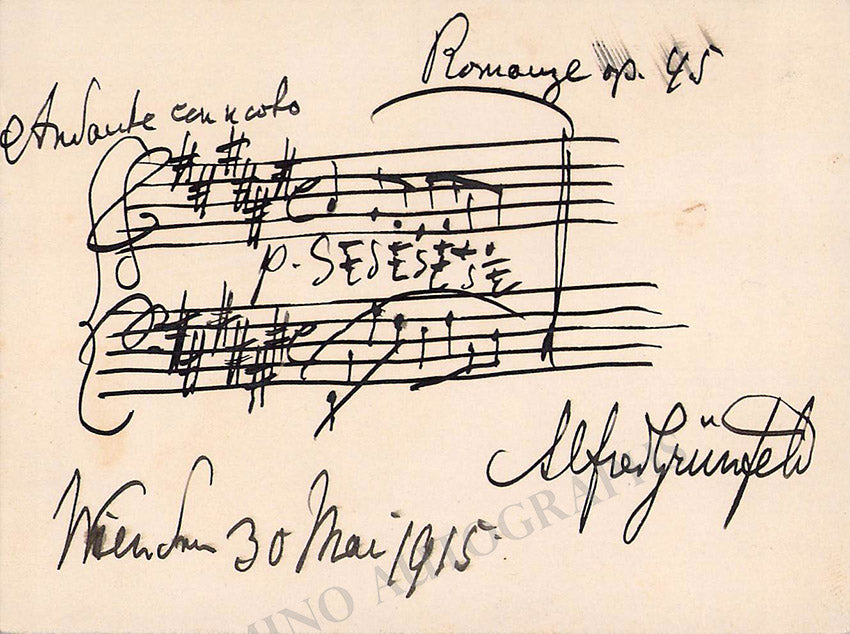 Romanze op. 45
Andante con moto
p.
Alfred Grünfeld
Wien den 30 Mai 1915.
TAMINO AUTOGRAPHS